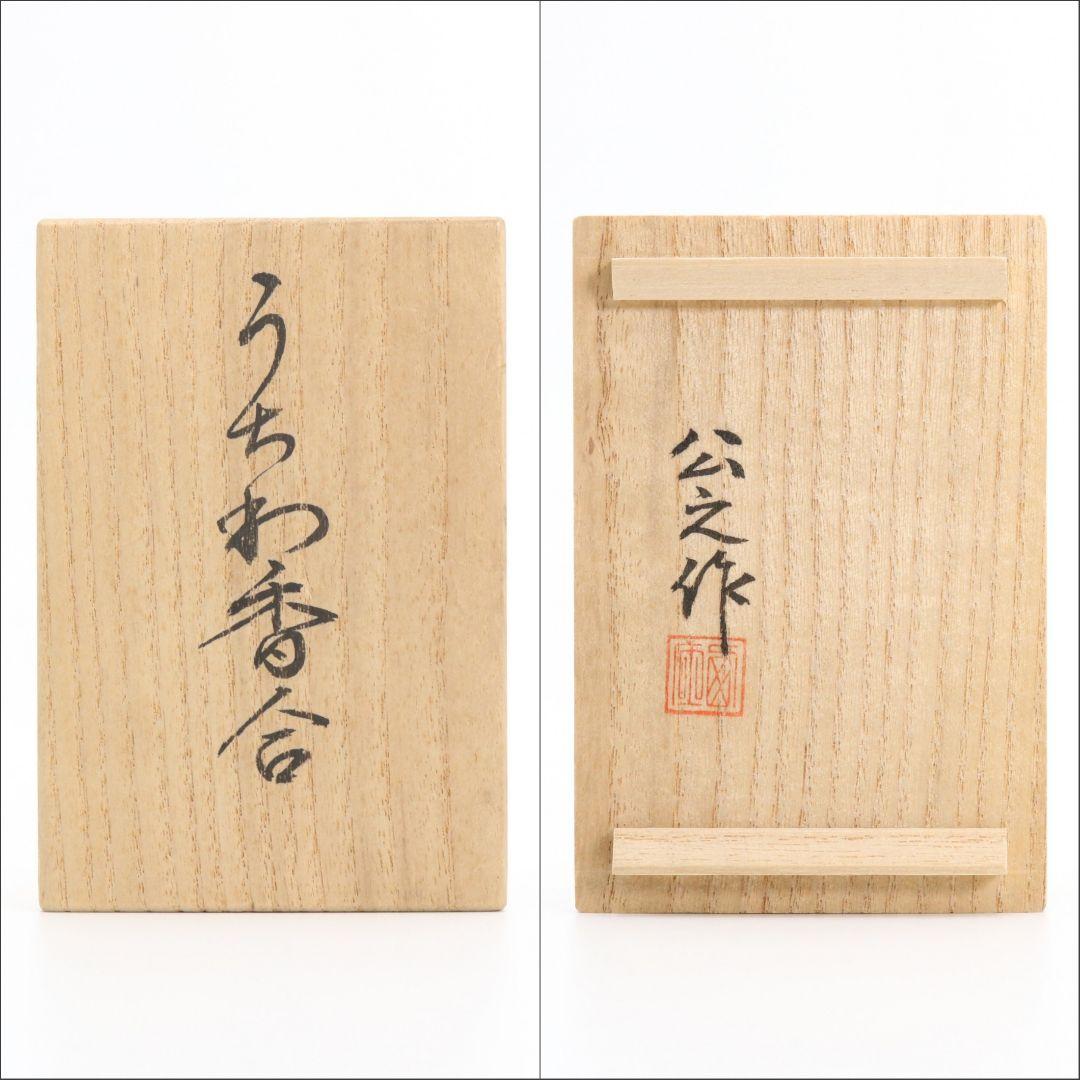 うちわ香合
公之作